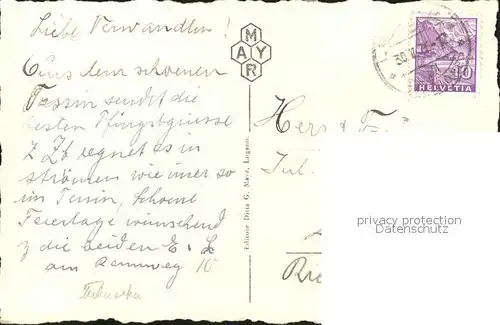 Liebe Verwandten!
Aus dem schoenen
Tessin sendet die
besten Pfingstgrüsse
Z Zt regnet es in
strömen wie imer so
im Tessin, schoene
Feiertage wünschend
die beiden E. L
am Rennweg 10
MAYR
Editore Ditta G. Mayr, Lugano.
HELVETIA
10
30.
Herr & F
Jul.
Rie
privacy protection
Datenschutz